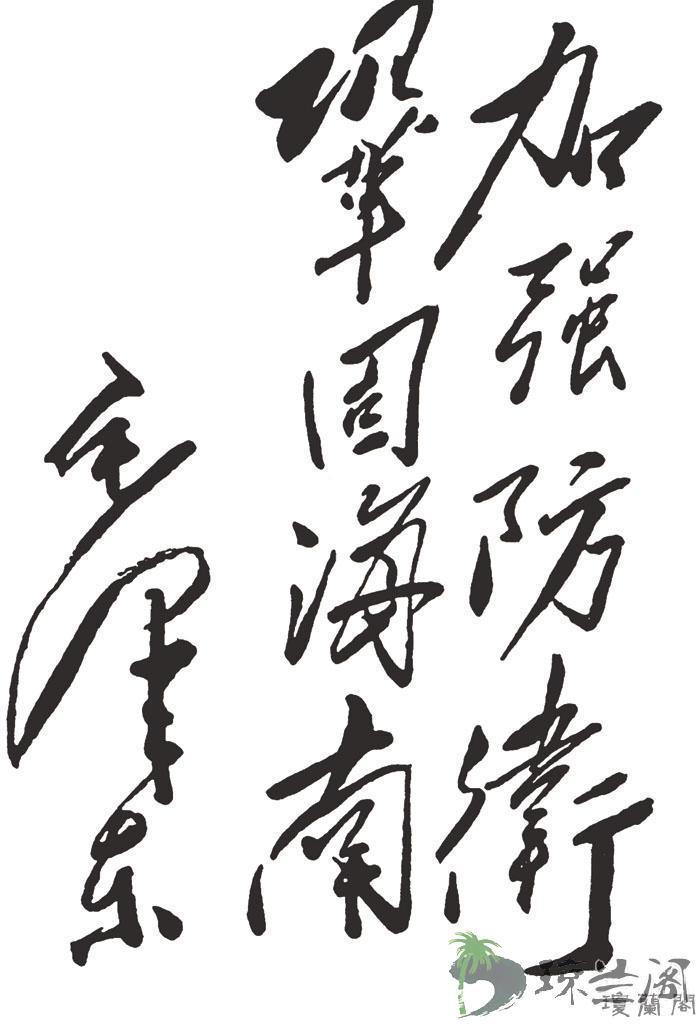 加强防衛
鞏固海南
毛泽东
琼兰阁
瓊蘭閣